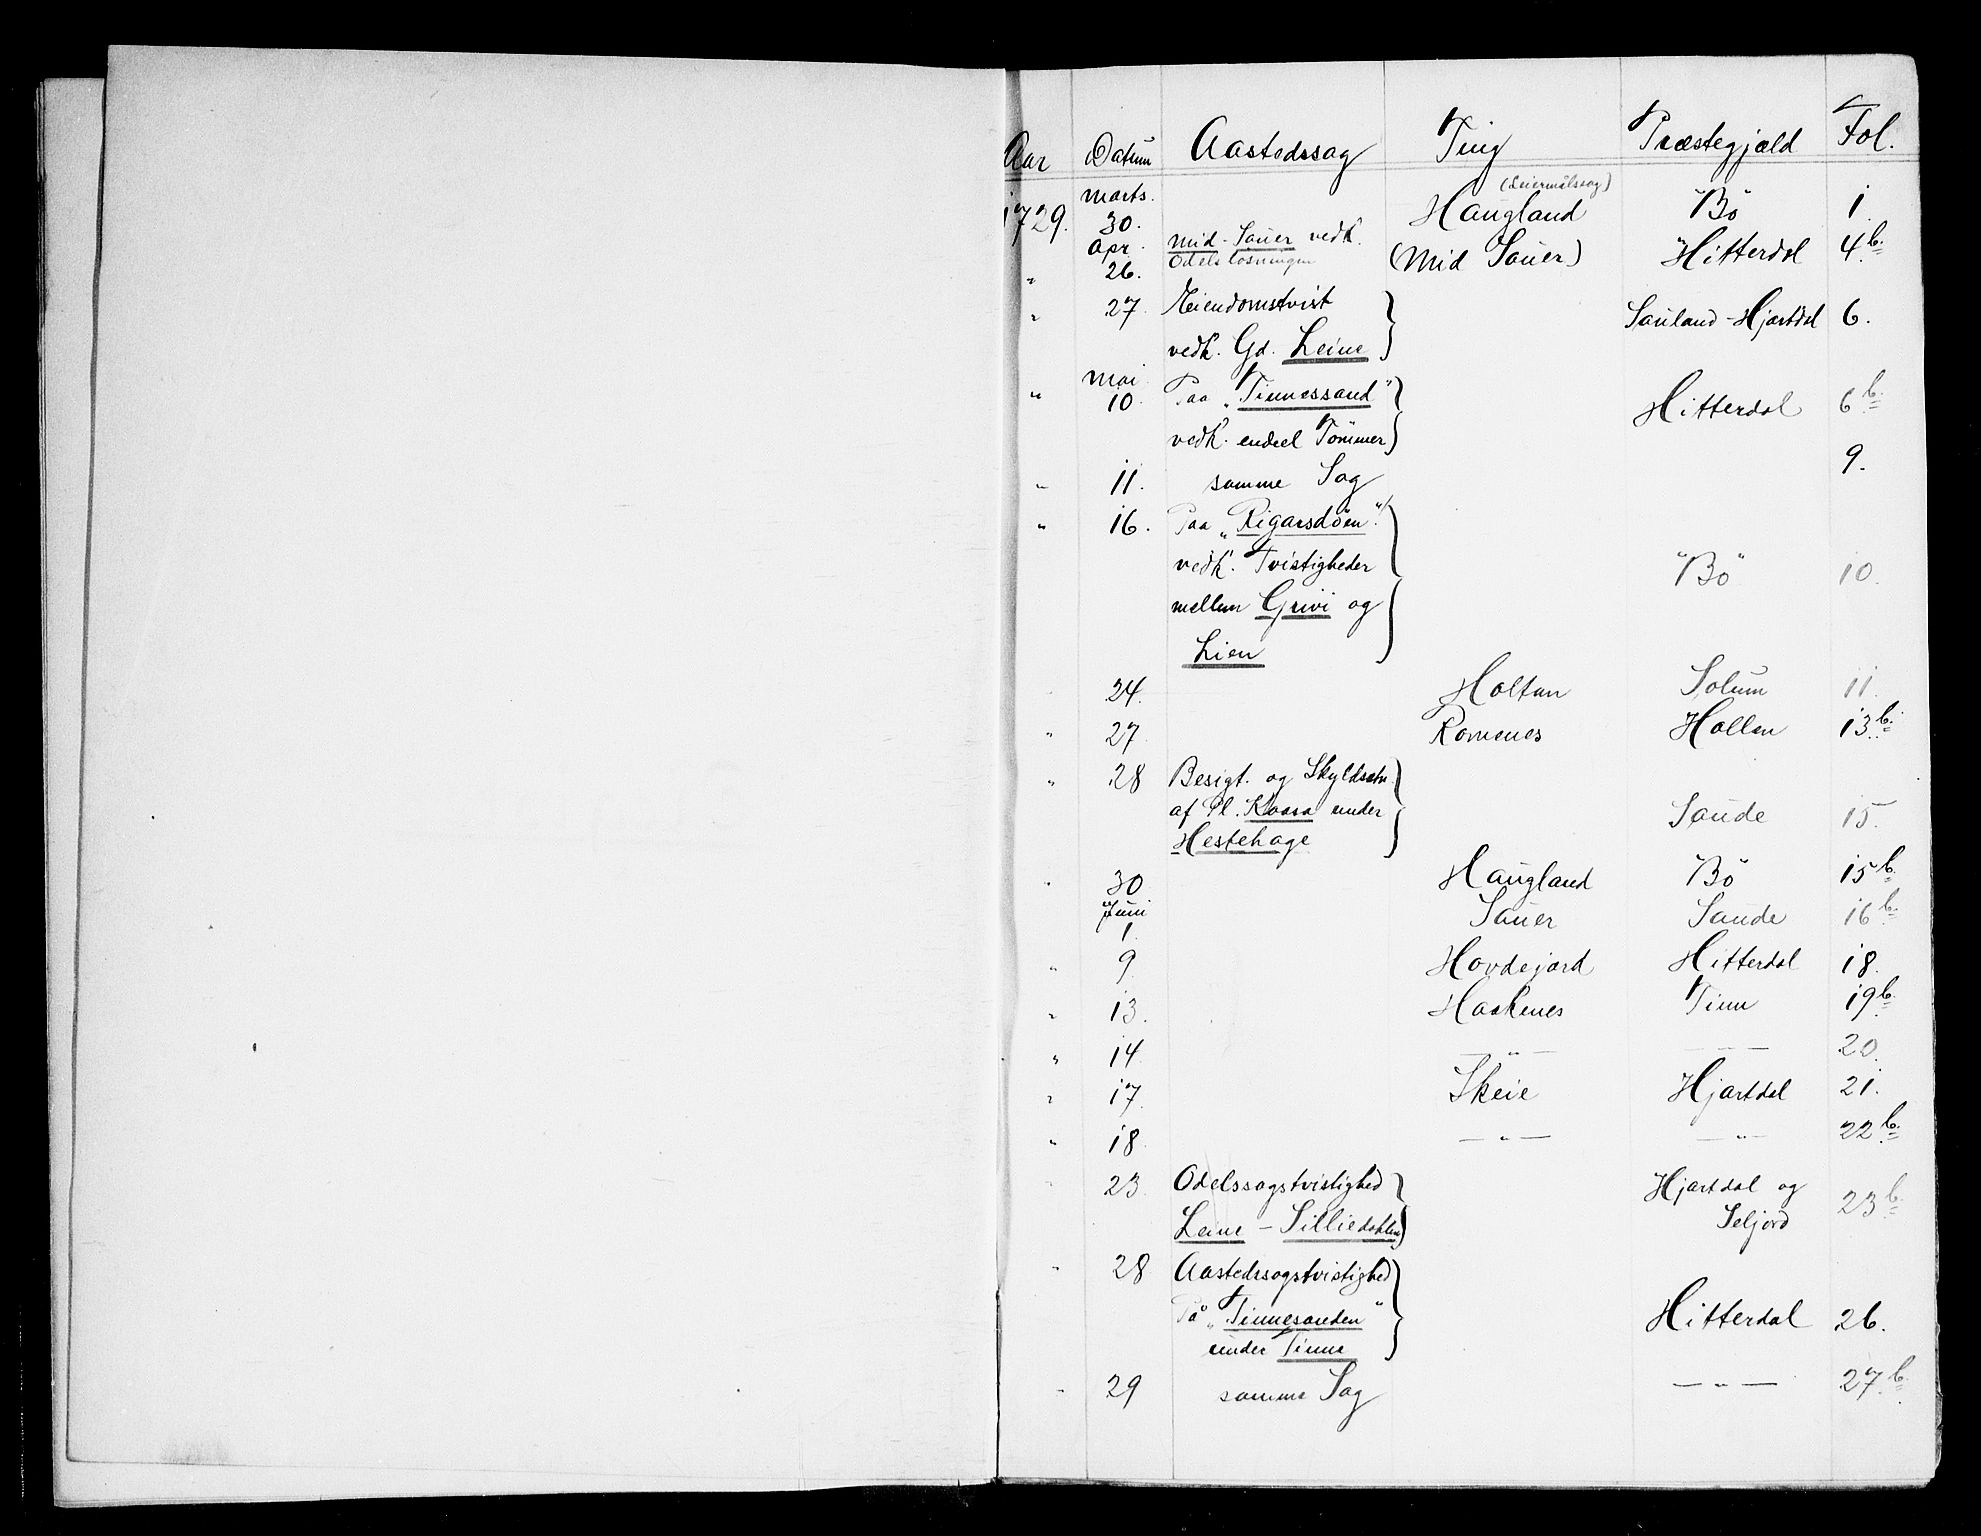 Aar Datum Aastedssag Ting Præstegjæld Fol.
1729. Marts. 30. Haugland (Leiermålssag) "Bö" 1.
" Apr. 26. Mid-Sauer vedk. Odelsløsningen (Mid Sauer) Hitterdal 4b.
" 27 Eiendomstvist Sauland-Hjartdal 6.
vedk. Gd. Leine
" Mai 10 Paa "Tinnessand" Hitterdal 6b.
vedk. endeel Tömmer
" 11. samme Sag 9.
" 16. Paa "Rigarsdöen"
vedk. Tvistigheder "Bö" 10.
mellem Grivi og
Lien
" 24. Holtan Solum 11.
" 27 Romenes Hollen 13b.
" 28 Besigt. og Skyldsætn.
af Pl. Kaasa under Saude 15.
Hestehage
" 30 Haugland "Bö" 15b.
Juni 1. Sauer Saude 16b.
" 9. Hovdejord Hitterdal 18.
" 13. Haakenes Tinn 19b.
" 14. — " — — " — 20.
" 17. Skeie Hjartdal 21.
" 18. — " — — " — 22b.
" 23 Odelssagstvistighed Hjartdal og 23b.
Leine - Silliedahlen Seljord
" 28 Aastedssagstvistighed
På "Tinnesanden" Hitterdal 26.
under Tinne
" 29 samme Sag — " — 27b.